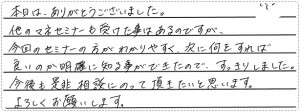 本日は、ありがとうございました。
他のマネセミナーも受けた事はあるのですが、
今回のセミナーの方がわかりやすく、次に何をすれば
良いのか明確に知る事ができたので、すっきりしました。
今後も是非相談にのって頂きたいと思います。
よろしくお願いします。